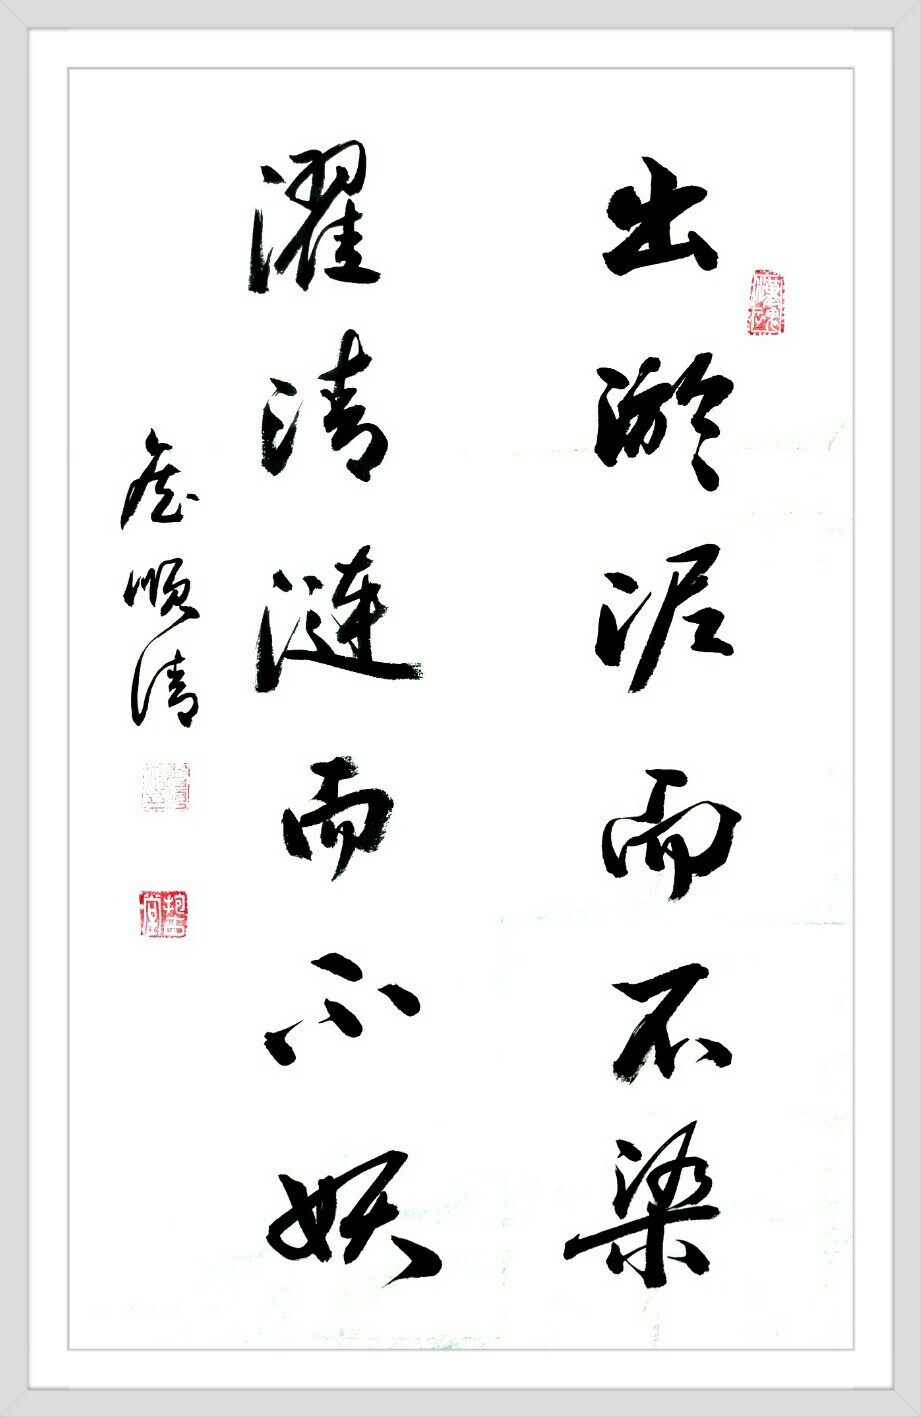 出淤泥而不染
濯清漣而不妖
詹順清